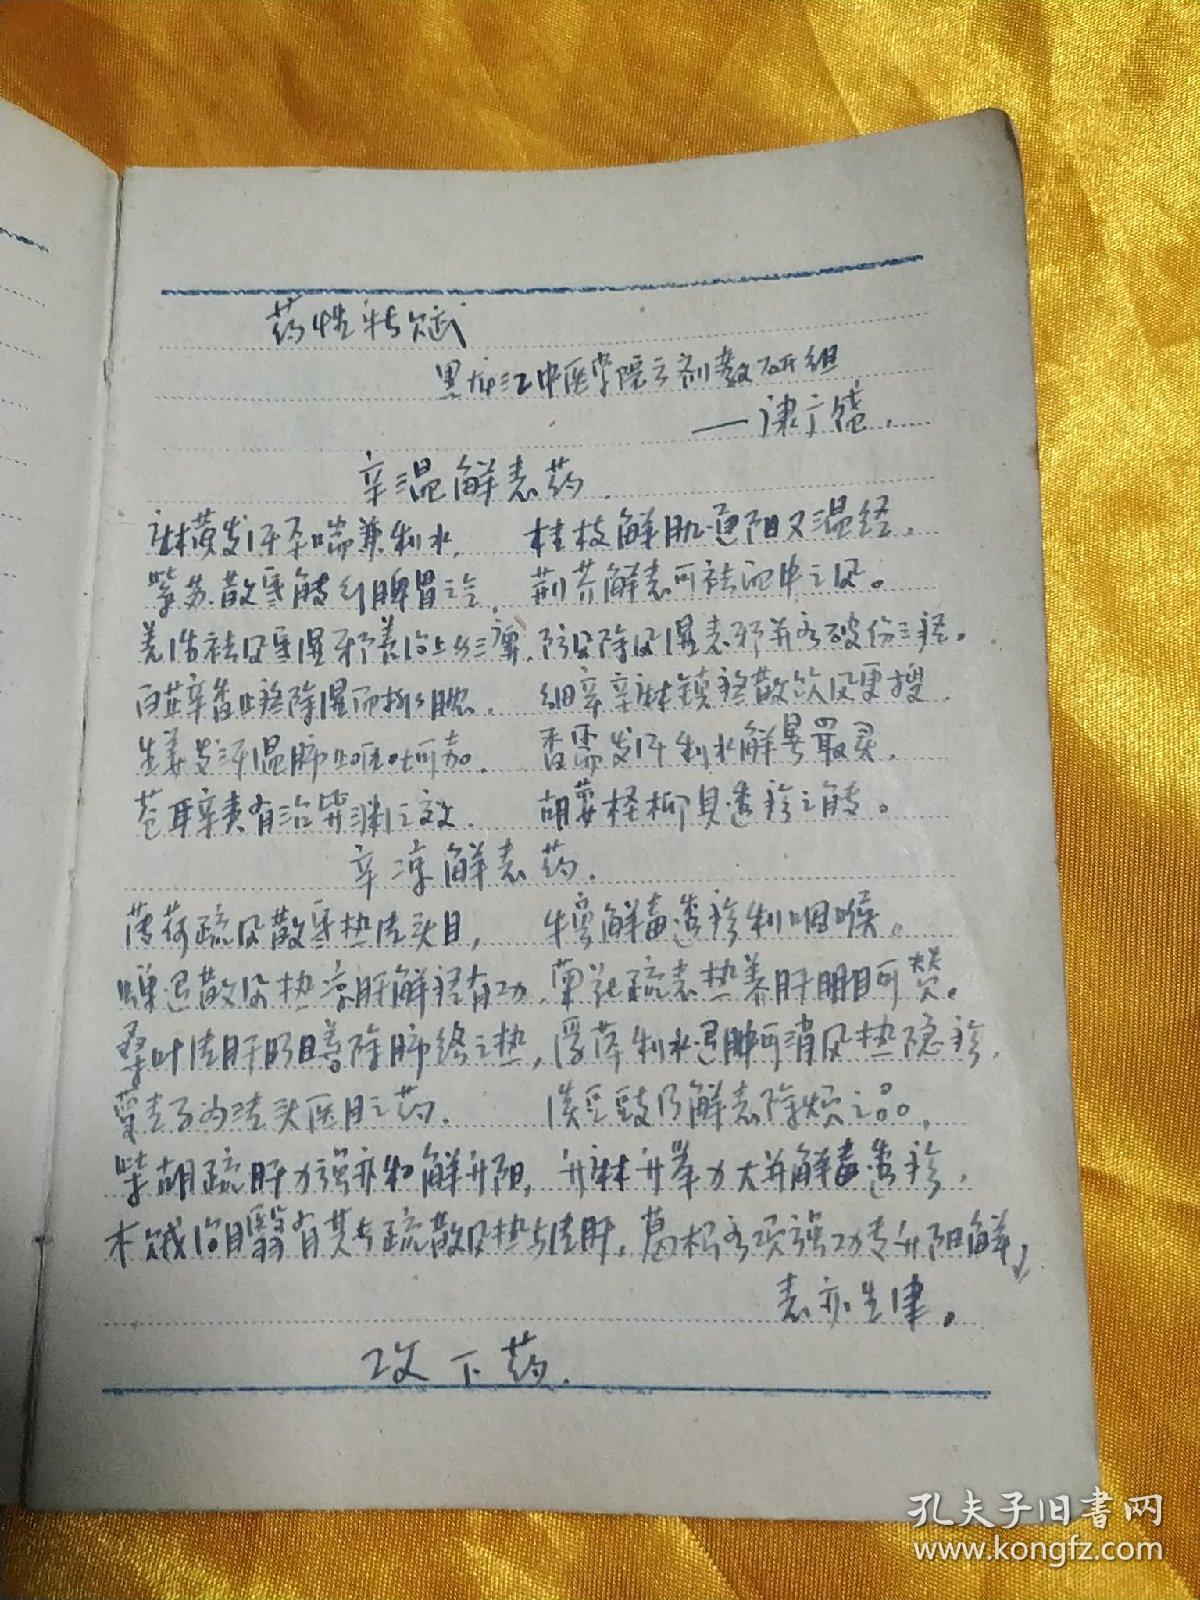 药性特赋
黑龙江中医学院方剂教研组
——康广
辛温解表药.
麻黄发汗平喘兼利水, 桂枝解肌通阳又温经,
紫苏散寒能行脾胃之, 荆芥解表可祛血中之风。
羌活祛风寒湿邪善治上 防风除风湿表邪并治破伤之痉。
白芷辛香止疼除湿而排脓. 细辛辛麻镇疼散饮风更搜,
生姜发汗温肺止呕吐可加. 香薷发汗利水解暑最灵,
苍耳辛夷有治鼻渊之效. 胡荽柽柳具透疹之能。
辛凉解表药.
薄荷疏风散热清头目, 牛蒡解毒透疹利咽喉。
蝉退散风热凉肝解痉有功. 菊花疏表热养肝明目可赞。
桑叶清肝明目善除肺络之热, 浮萍利水退肿可消风热隐疹,
蔓荆子为清头医目之药. 淡豆豉乃解表除烦之品,
柴胡疏肝力强亦和解升阳, 升麻升举力大并解毒透疹,
木贼治目翳有其专疏散风热与清肝, 葛根治项强功专升阳解
表亦生津。
攻下药.
孔夫子旧书网
www.kongfz.com